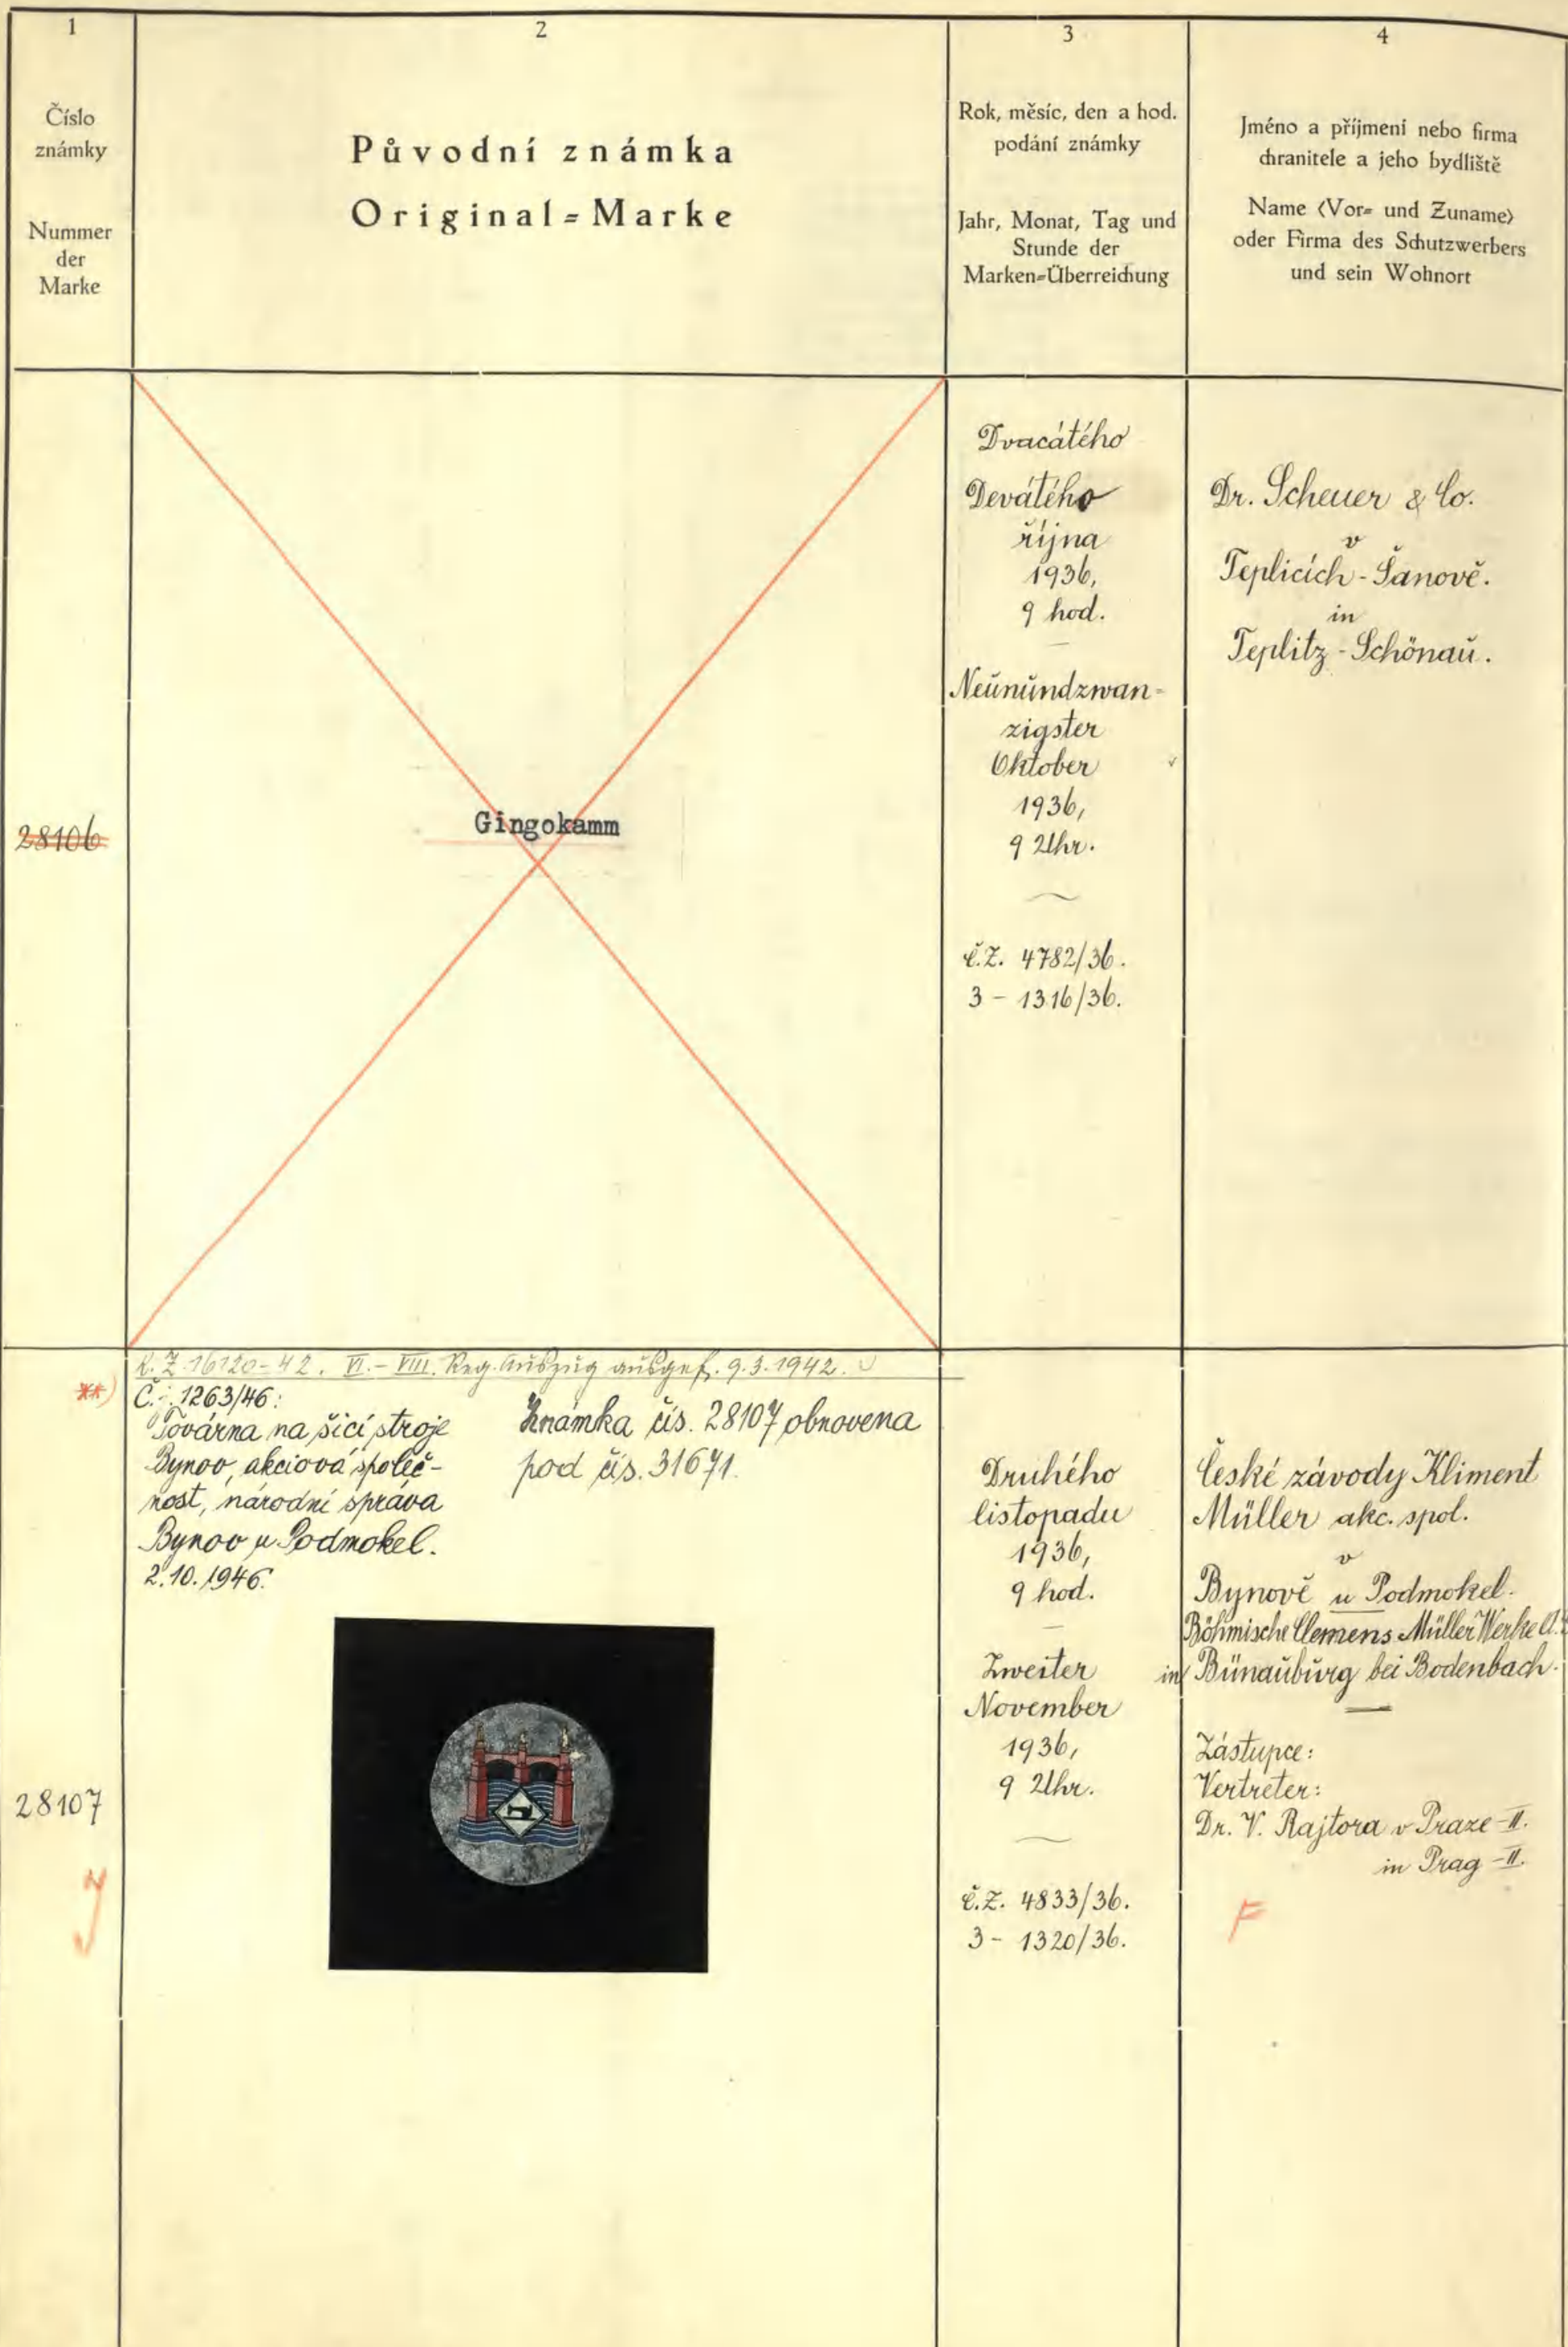 1
Číslo
známky
Nummer
der
Marke
2
Původní známka
Original=Marke
3
Rok, měsíc, den a hod.
podání známky
Jahr, Monat, Tag und
Stunde der
Marken=Überreichung
4
Jméno a příjmení nebo firma
chranitele a jeho bydliště
Name (Vor= und Zuname)
oder Firma des Schutzwerbers
und sein Wohnort
28106
Gingokamm
Dvacátého
Devátého
října
1936,
9 hod.
Neunundzwan=
zigster
Oktober
1936,
9 Uhr.
č.Z. 4782/36.
3 - 1316/36.
Dr. Scheuer & Co.
v
Teplicích-Šanově.
in
Teplitz-Schönau.
R.Z. 16120-42. VI.-VIII. Reg. Auszug ausgef. 9.3.1942.
**)
Č.j. 1263/46:
Továrna na šicí stroje
Bynov, akciová společ-
nost, národní správa
Bynov u Podmokel.
2.10.1946.
Známka čís. 28107 obnovena
pod čís. 31671.
28107
Druhého
listopadu
1936,
9 hod.
Zweiter
November
1936,
9 Uhr.
č.Z. 4833/36.
3 - 1320/36.
České závody Kliment
Müller akc. spol.
v
Bynově u Podmokel.
Böhmische Clemens Müller Werke A.
in Bünauburg bei Bodenbach.
Zástupce:
Vertreter:
Dr. V. Rajtora v Praze-II.
in Prag-II.
F